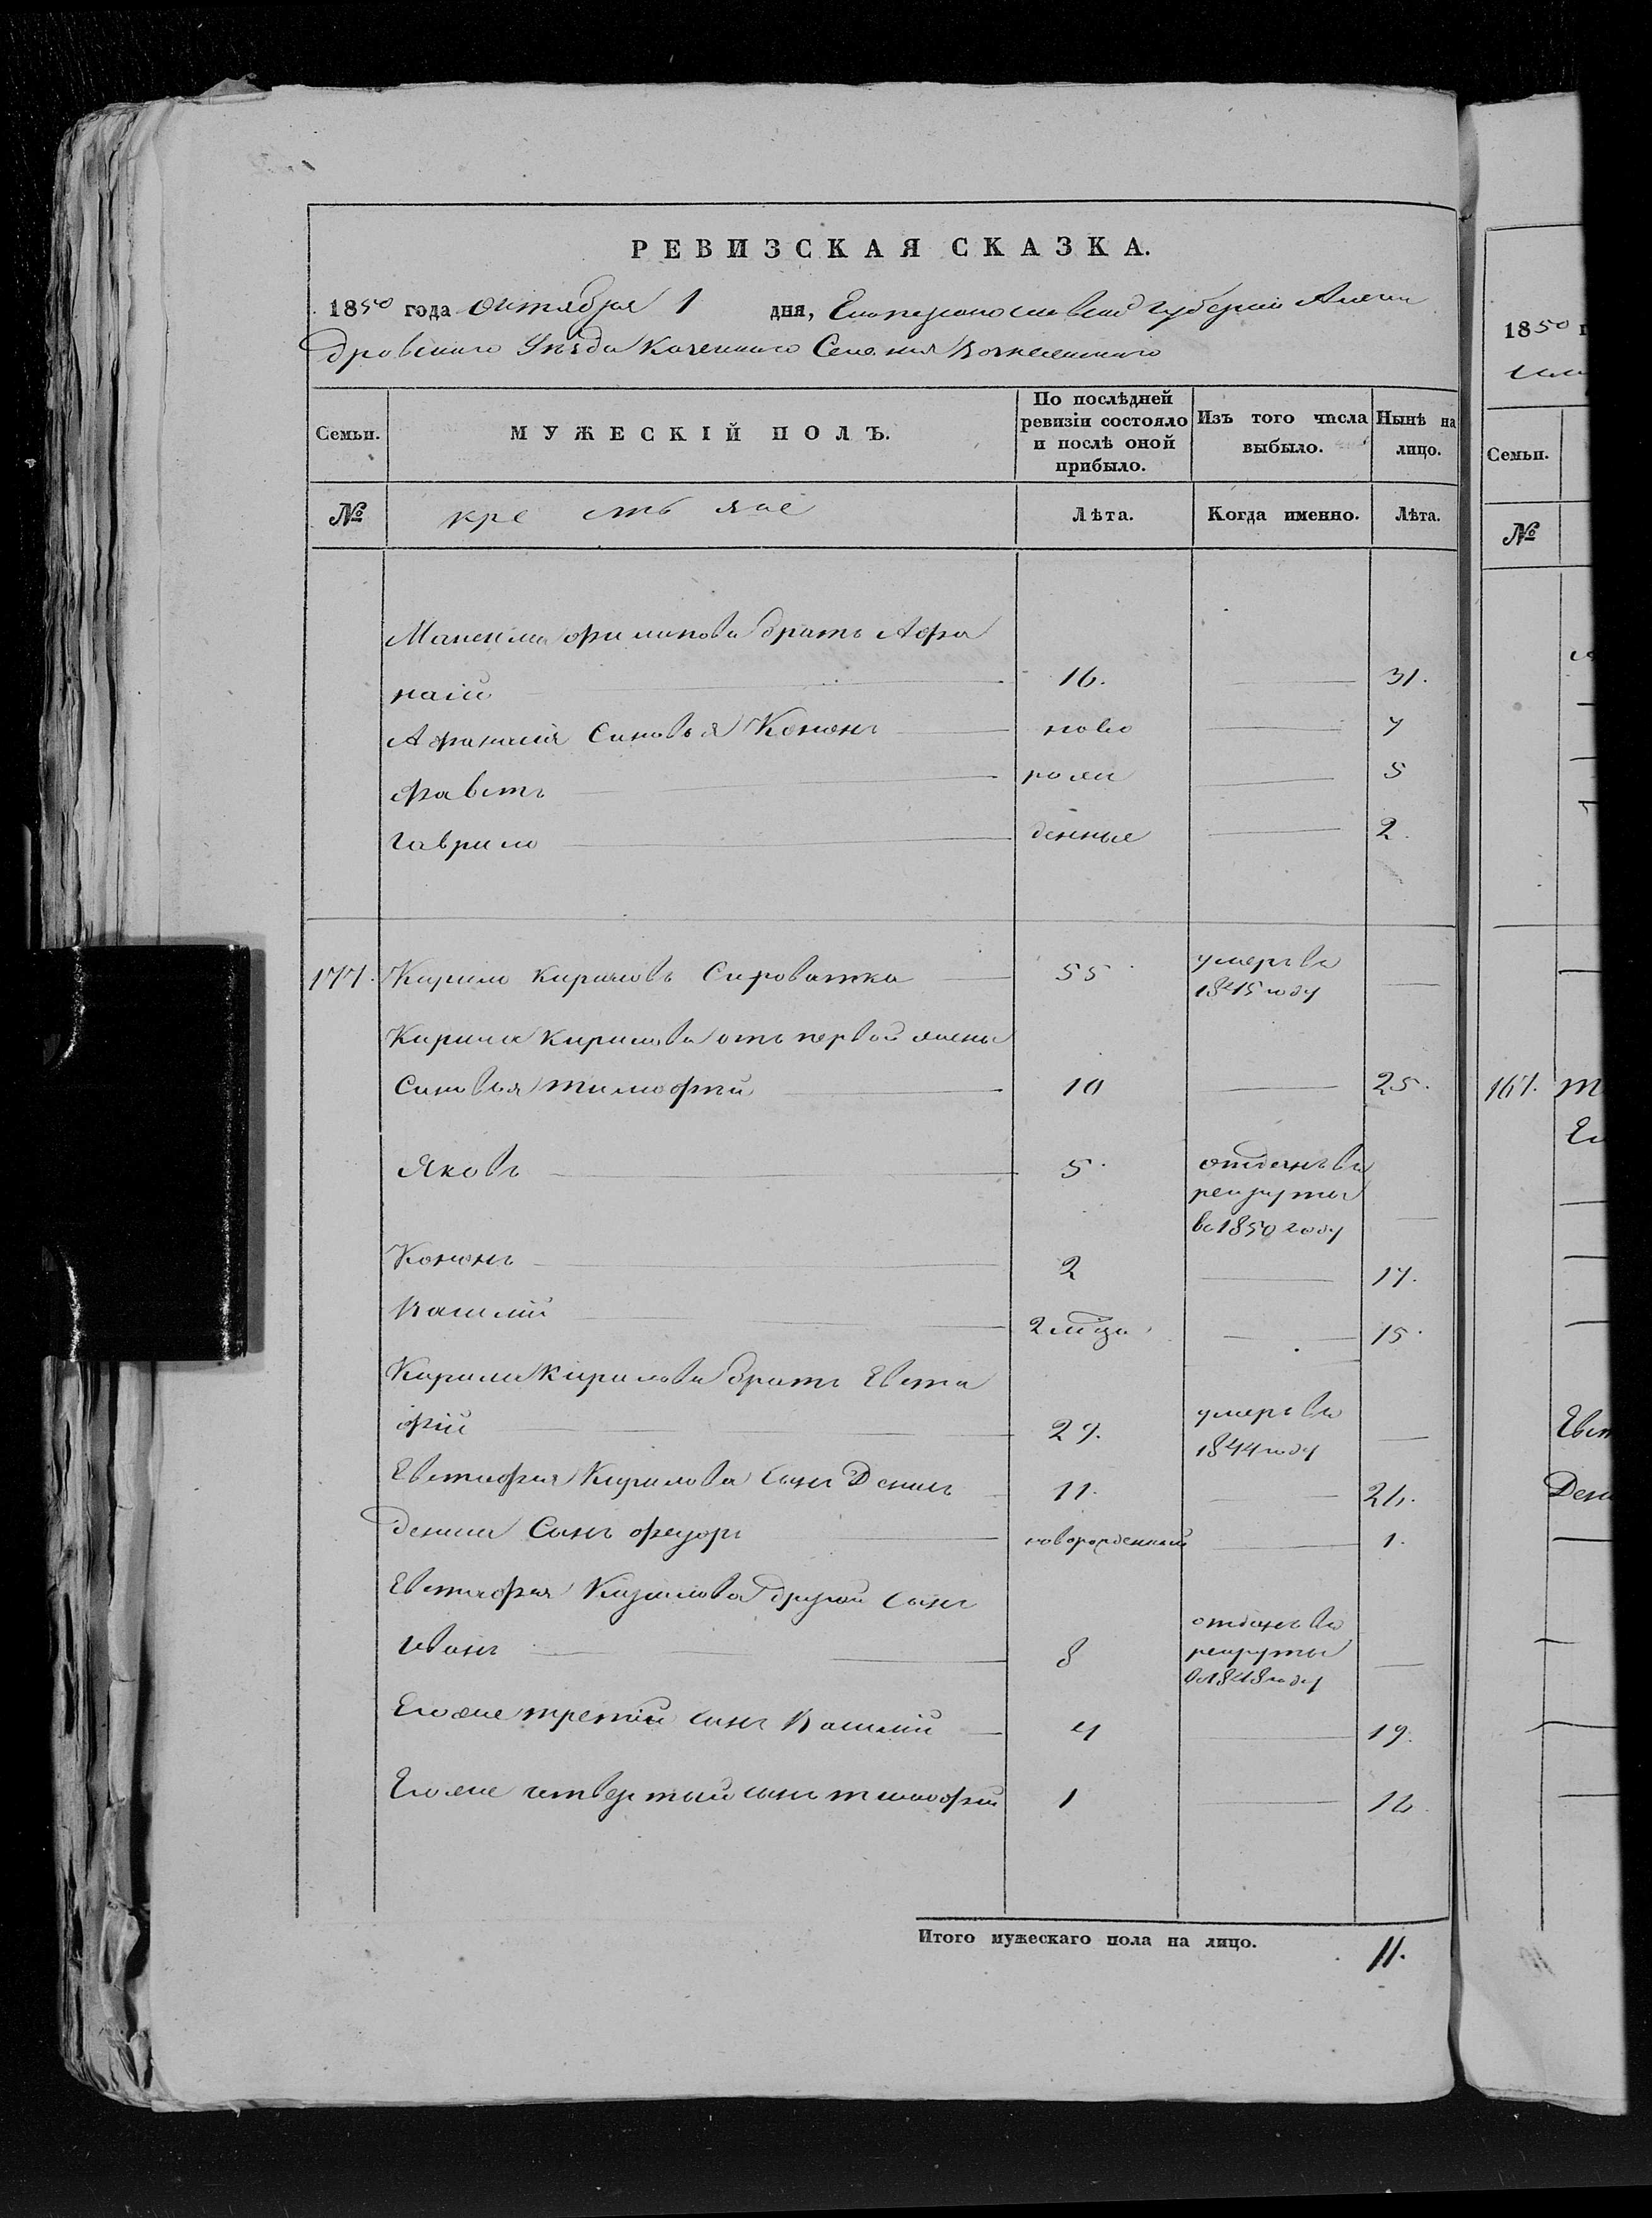 РЕВИЗСКАЯ СКАЗКА.
1850 года октября 1 дня, Екатеринославской губернии Алексан
дровского Уезда Казенного Селения Вознесенского
Семьи.
МУЖЕСКІЙ ПОЛЪ.
По послѣдней ревизіи состояло и послѣ оной прибыло.
Изъ того числа выбыло.
Нынѣ на лицо.
№ крестьяне Лѣта. Когда именно. Лѣта.
Максима Филипова братъ Афа
насій 16. 31.
Афанасія Сыновья Кононъ ново 7
Фавстъ рож 5
Гаврило денные 2.
177. Кирило Кириловъ Сироватка 55 умеръ въ
1845 году
Кирила Кирилова отъ первой жены
Сыновья Тимофей 10 25.
Яковъ 5. отданъ въ
рекруты
въ 1850 году
Кононъ 2 17.
Василій 2 мѣся 15.
Кирила Кирилова братъ Евста
фій 29. умеръ въ
1844 году
Евстафія Кирилова Сынъ Денисъ 11. 26.
Дениса Сынъ Федоръ новорожденный 1.
Евстафія Кирилова другой Сынъ
Иванъ 8 отданъ въ
рекруты
въ 1848 году
Его же третій сынъ Василій 4 19.
Его же четвертый сынъ Тимофей 1 16.
Итого мужескаго пола на лицо. 11.
1850 г
Семьи.
№
167. Т
Ев
Евст
Дени